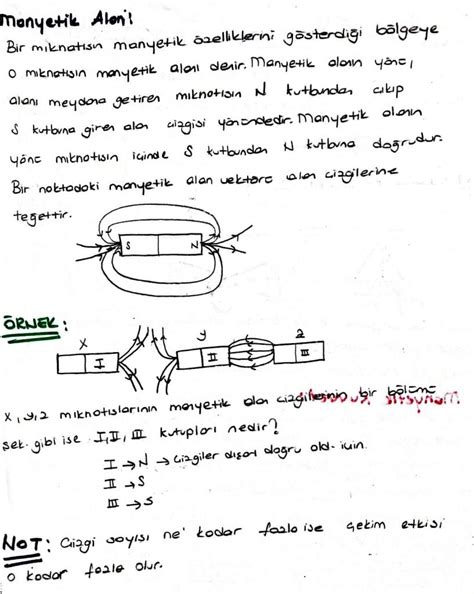 Manyetik Alan:
Bir mıknatısın manyetik özelliklerini gösterdiği bölgeye
o mıknatısın manyetik alanı denir. Manyetik alanın yönü,
alanı meydana getiren mıknatısın N kutbundan çıkıp
S kutbuna giren alan çizgisi yönündedir. Manyetik alanın
yönü mıknatısın içinde S kutbundan N kutbuna doğrudur.
Bir noktadaki manyetik alan vektörü alan çizgilerine
teğettir.
S N
ÖRNEK:
x y z
I II III
x, y, z mıknatıslarının manyetik alan çizgilerinin bir bölümü
şek. gibi ise I, II, III kutupları nedir?
I → N → çizgiler dışarı doğru old. için.
II → S
III → S
NOT: Çizgi sayısı ne kadar fazla ise çekim etkisi
o kadar fazla olur.